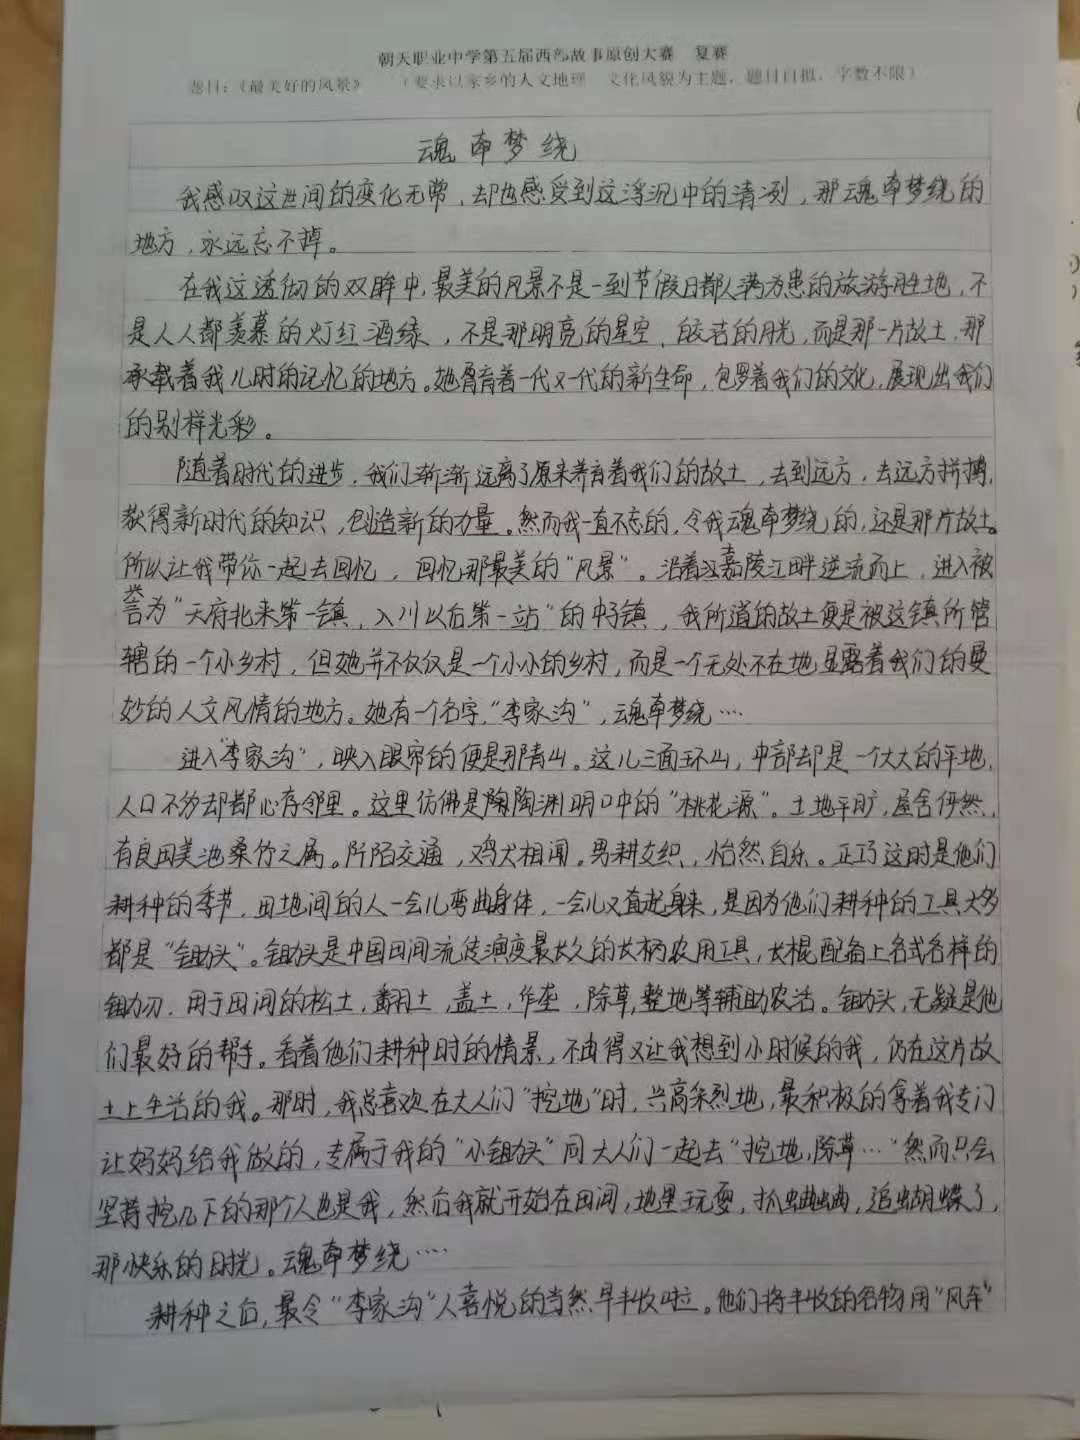 朝天职业中学第五届西部故事原创大赛 复赛
题目：《最美好的风景》 （要求以家乡的人文地理 文化风貌为主题，题目自拟，字数不限）
魂牵梦绕
我感叹这世间的变化无常，却也感受到这浮沉中的清冽，那魂牵梦绕的
地方，永远忘不掉。
在我这透彻的双眸中，最美的风景不是一到节假日都人满为患的旅游胜地，不
是人人都羡慕的灯红酒绿，不是那明亮的星空，皎洁的月光，而是那一片故土，那
承载着我儿时的记忆的地方。她孕育着一代又一代的新生命，包罗着我们的文化，展现出我们
的别样光彩。
随着时代的进步，我们渐渐远离了原来养育着我们的故土，去到远方，去远方拼搏，
获得新时代的知识，创造新的力量。然而我一直不忘的，令我魂牵梦绕的，还是那片故土。
所以让我带你一起去回忆，回忆那最美的“风景”。沿着嘉陵江畔逆流而上，进入被
誉为“天府北来第一镇，入川以后第一站”的中子镇，我所道的故土便是被这镇所管
辖的一个小乡村，但她并不仅仅是一个小小的乡村，而是一个无处不在地显露着我们的曼
妙的人文风情的地方。她有一个名字，“李家沟”，魂牵梦绕…
进入“李家沟”，映入眼帘的便是那青山。这儿三面环山，中部却是一个大大的平地，
人口不多却都心存邻里。这里仿佛是陶渊明口中的“桃花源”。土地平旷，屋舍俨然，
有良田美池桑竹之属。阡陌交通，鸡犬相闻。男耕女织，怡然自乐。正巧这时是他们
耕种的季节，田地间的人一会儿弯曲身体，一会儿又直起身来，是因为他们耕种的工具大多
都是“锄头”。锄头是中国田间流传演变最长久的长柄农用工具，长棍配备上各式各样的
锄刃，用于田间的松土，翻土，盖土，作垄，除草，整地等辅助农活。锄头，无疑是他
们最好的帮手。看着他们耕种时的情景，不由得又让我想到小时候的我，仍在这片故
土上生活的我。那时，我总喜欢在大人们“挖地”时，兴高采烈地，最积极的拿着我专门
让妈妈给我做的，专属于我的“小锄头”同大人们一起去“挖地，除草…”然而只会
坚持挖几下的那个人也是我，然后我就开始在田间，地里玩耍，抓蛐蛐，追蝴蝶了，
那快乐的时光。魂牵梦绕…
耕种之后，最令“李家沟”人喜悦的当然是丰收啦。他们将丰收的谷物用“风车”